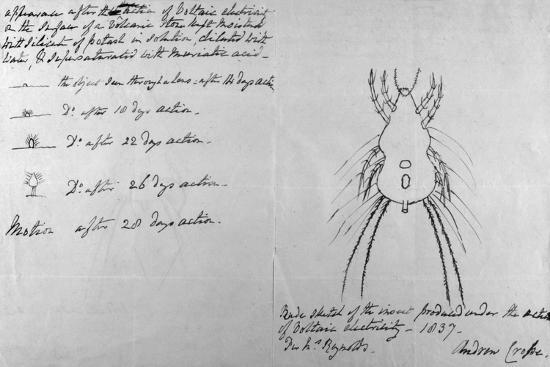 appearance after the action of Voltaic electricity
on the surface of a Volcanic stone kept moistened
with Silicate of potash in solution, diluted with
Water, & supersaturated with Muriatic acid -
the object seen through a lens - after 14 days action
Do. after 18 days action.
Do. after 22 days action.
Do. after 26 days action -
Motion after 28 days action.
Rude sketch of the insect produced under the action
of Voltaic electricity - 1837 -
Reynolds.
Andrew Crosse.